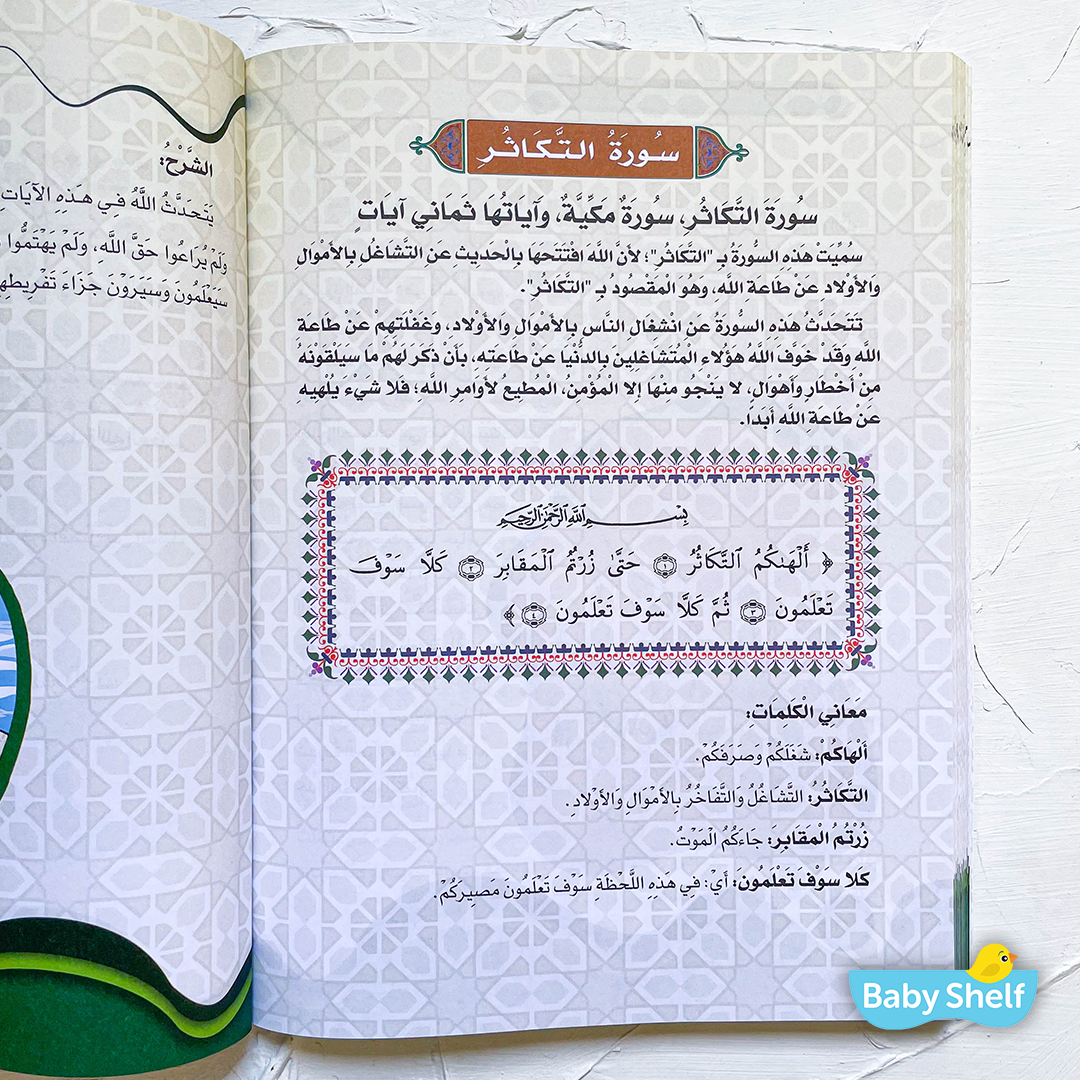 سُورَةُ التَّكَاثُرِ
سُورَةَ التَّكَاثُرِ، سُورَةٌ مَكِّيَّةٌ، وَآيَاتُهَا ثَمَانِي آيَاتٍ
سُمِّيَتْ هَذِهِ السُّورَةُ بِـ "التَّكَاثُرِ"؛ لأَنَّ اللَّهَ افْتَتَحَهَا بِالْحَدِيثِ عَنِ التَّشَاغُلِ بِالأَمْوَالِ
وَالأَوْلَادِ عَنْ طَاعَةِ اللَّهِ، وَهُوَ الْمَقْصُودُ بِـ "التَّكَاثُرِ".
تَتَحَدَّثُ هَذِهِ السُّورَةُ عَنِ انْشِغَالِ النَّاسِ بِالأَمْوَالِ وَالأَوْلَادِ، وَغَفْلَتِهِمْ عَنْ طَاعَةِ
اللَّهِ وَقَدْ خَوَّفَ اللَّهُ هَؤُلَاءِ الْمُتَشَاغِلِينَ بِالدُّنْيَا عَنْ طَاعَتِهِ، بِأَنْ ذَكَرَ لَهُمْ مَا سَيَلْقَوْنَهُ
مِنْ أَخْطَارٍ وَأَهْوَالٍ، لا يَنْجُو مِنْهَا إِلا الْمُؤْمِنُ، الْمُطِيعُ لأَوَامِرِ اللَّهِ؛ فَلا شَيْءَ يُلْهِيهِ
عَنْ طَاعَةِ اللَّهِ أَبَدًا.
بِسْمِ اللَّهِ الرَّحْمَٰنِ الرَّحِيمِ
﴿ أَلْهَىٰكُمُ ٱلتَّكَاثُرُ ١ حَتَّىٰ زُرْتُمُ ٱلْمَقَابِرَ ٢ كَلَّا سَوْفَ
تَعْلَمُونَ ٣ ثُمَّ كَلَّا سَوْفَ تَعْلَمُونَ ٤ ﴾
مَعَانِي الْكَلِمَاتِ:
أَلْهَاكُمْ: شَغَلَكُمْ وَصَرَفَكُمْ.
التَّكَاثُرُ: التَّشَاغُلُ وَالتَّفَاخُرُ بِالأَمْوَالِ وَالأَوْلَادِ.
زُرْتُمُ الْمَقَابِرَ: جَاءَكُمُ الْمَوْتُ.
كَلا سَوْفَ تَعْلَمُونَ: أَيْ: فِي هَذِهِ اللَّحْظَةِ سَوْفَ تَعْلَمُونَ مَصِيرَكُمْ.
الشَّرْحُ:
يَتَحَدَّثُ اللَّهُ فِي هَذِهِ الآيَاتِ
وَلَمْ يُرَاعُوا حَقَّ اللَّهِ، وَلَمْ يَهْتَمُّوا
سَيَعْلَمُونَ وَسَيَرَوْنَ جَزَاءَ
Baby Shelf